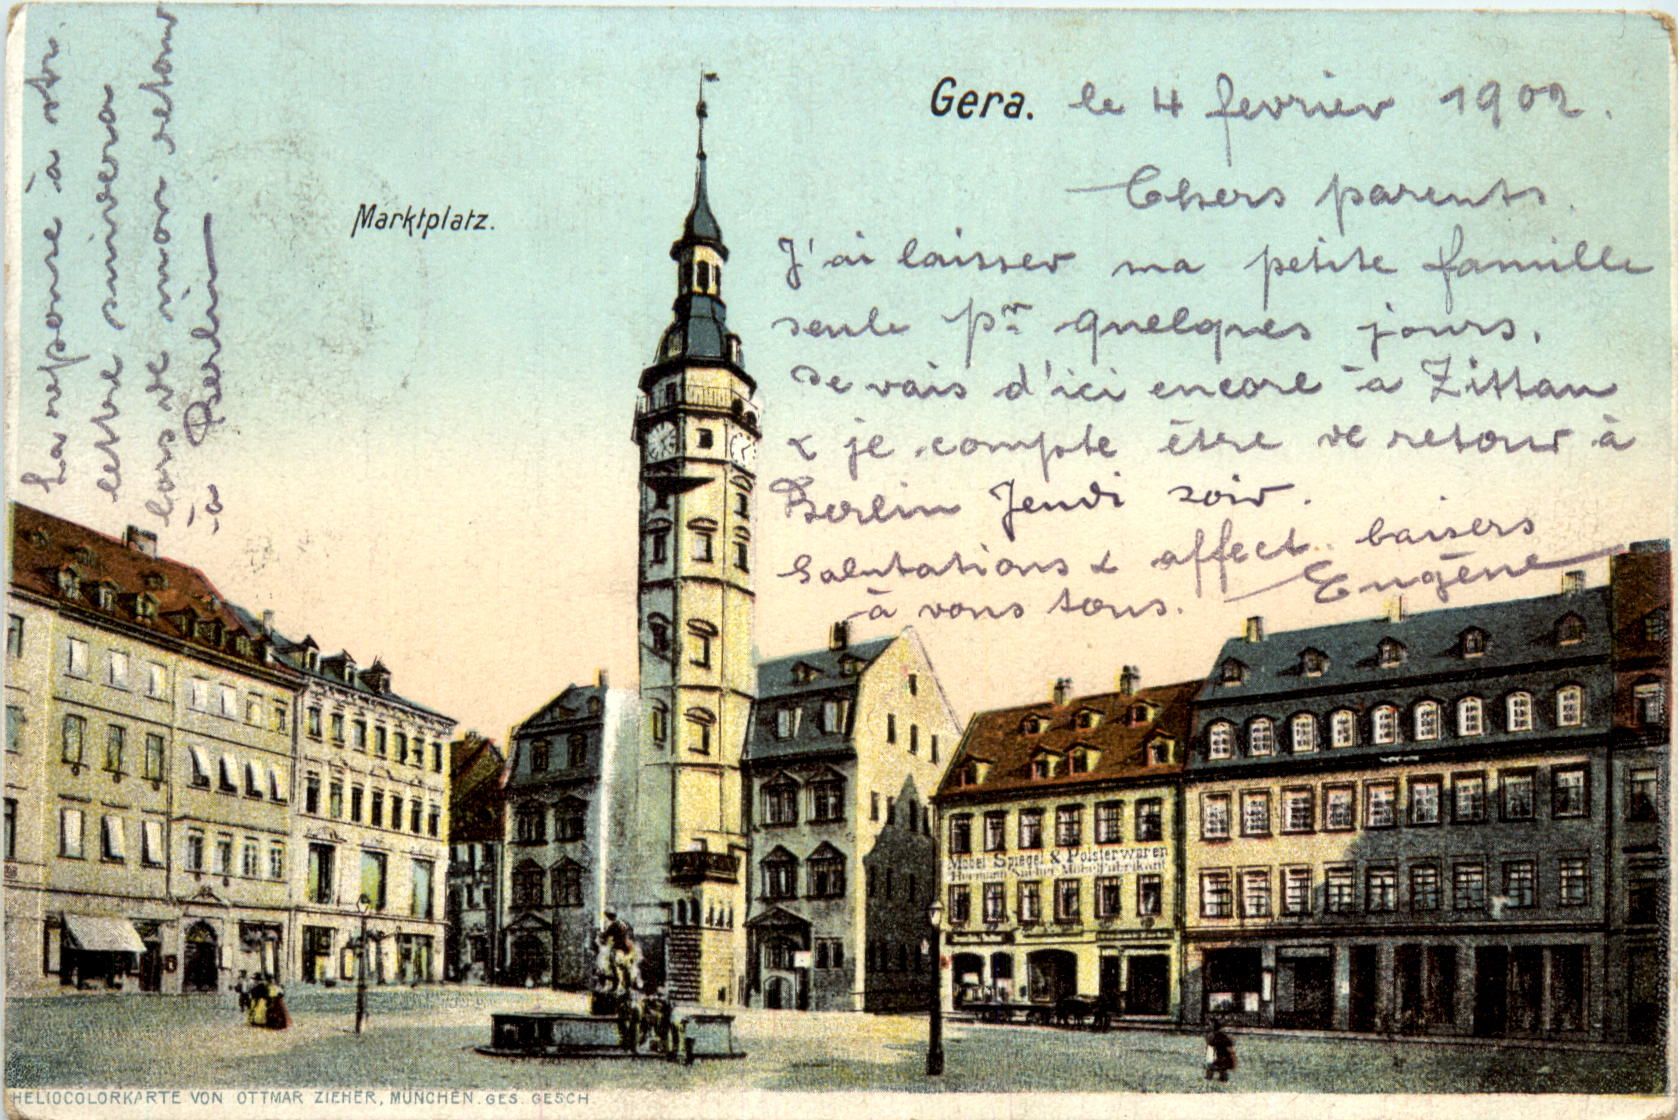 La reponse à vtr.
lettre suivera
lors de mon retour
à Berlin
Marktplatz.
Gera. le 4 fevrier 1902.
Chers parents.
J'ai laisser ma petite famille
seule pr quelques jours.
Je vais d'ici encore à Zittau
& je compte être de retour à
Berlin Jeudi soir.
Salutations & affect. baisers
à vous tous. Eugène
Möbel Spiegel & Polsterwaren
Hermann Möbelfabrikant
HELIOCOLORKARTE VON OTTMAR ZIEHER, MÜNCHEN. GES. GESCH.